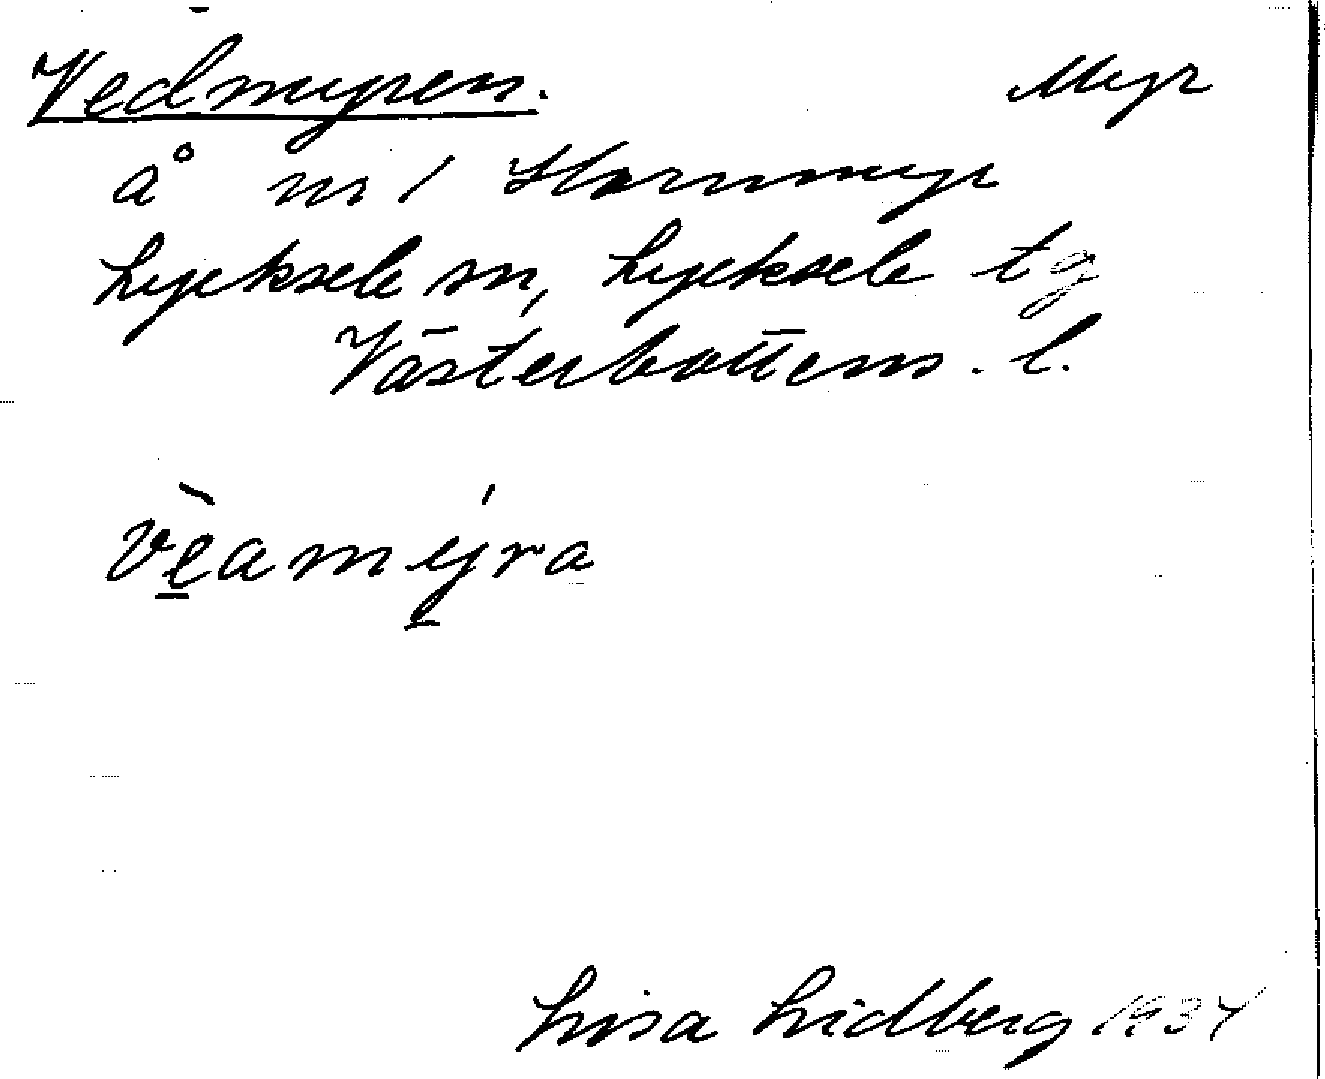 Vedmyren. Myr
å nr 1 Stormyr
Lycksele sn, Lycksele tg
Västerbottens. l.
vèamýra
Lisa Lidberg 1934